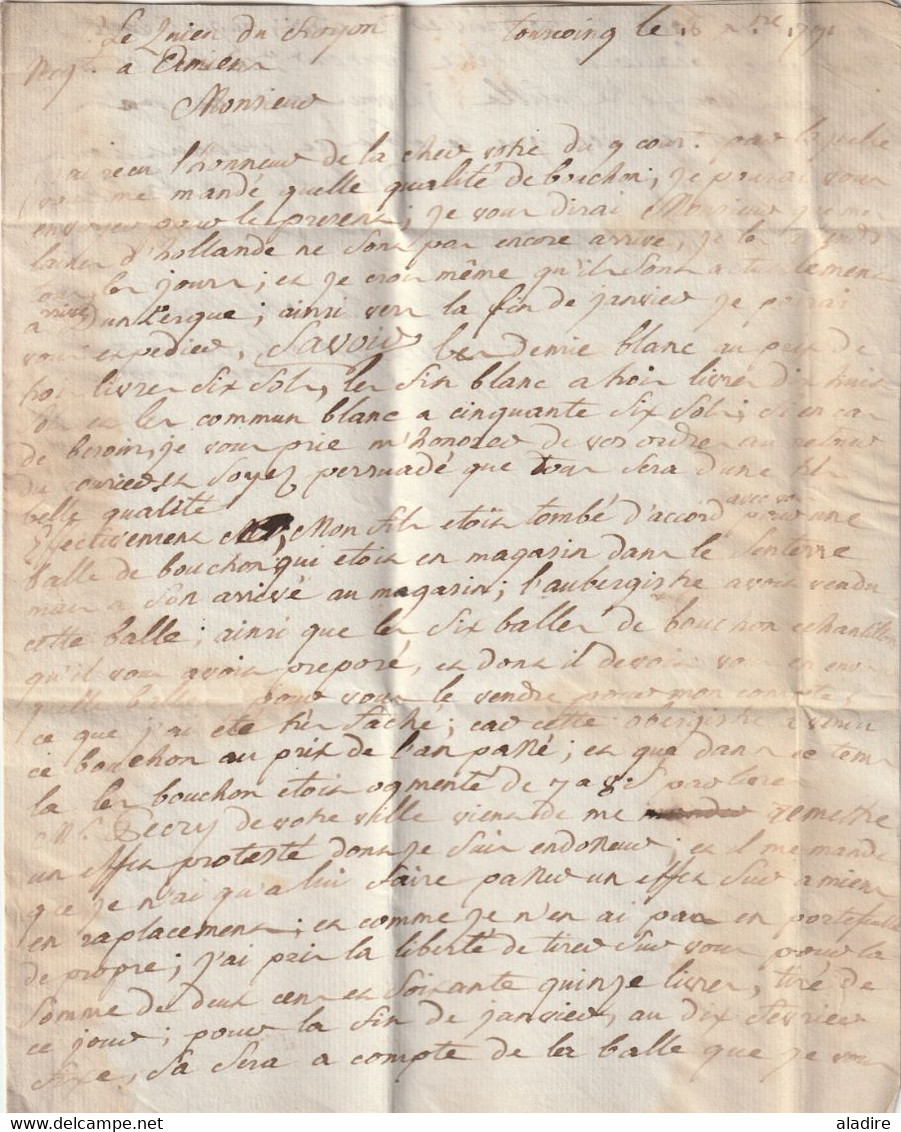 Le Quien du Royon tourcoing le 1791
Negt. a Amiens
Monsieur
j'ai recu l'honneur de la cher votre du 9 cour. par la quelle
vous me mandé quelle qualité de bouchon, je pourai vous
envoyer pour le present; je vous dirai Monsieur que mes
laines d'hollande ne sont pas encore arrivé, je les
tous les jours; et je crois même qu'ils sont actuelement
arrivé a Dunkerque; ainsi vers la fin de janvier je pourai
vous expedier, Savoir les demie blanc au prix de
trois livres six sols, les fin blanc a trois livres dix huit
sols et les commun blanc a cinquante six sols; si en cas
de besoin, je vous prie m'honorer de vos ordres au retour
du courier et soyez persuadé que tous sera d'une tres
belle qualité
Effectivement Mr, Mon fils etois tombé d'accord avec vous pour une
balle de bouchon qui etois en magasin dans le
mais a son arrivé au magasin; l'aubergistre avois vendu
cette balle; ainsi que les six balles de bouchon echantillon
qu'il vous avois proposé, et dons il devois vous en
quelle balles pour vous le vendre pour mon compte
ce que j'ai eté tres faché; car cette obergistre a vendu
ce bouchon au prix de l'an passé; et que dans ce tems
la les bouchon etois ogmenté de 7 a 8 s. par livre
Mr. Decry de votre ville viens de me remettre
un effet protesté dons je suis endosseur; et il me mande
que je n'ai qu'a lui faire passer un effet sur amiens
en raplacement; et comme je n'en ai pas en portefeuille
de propre; j'ai pris la liberté de tirer sur vous pour la
somme de deux cens et soixante quinze livres, tiré de
ce jour; pour la fin de janvier, au dix fevrier
fixe, sa sera a compte de les balle que je vous
aladire